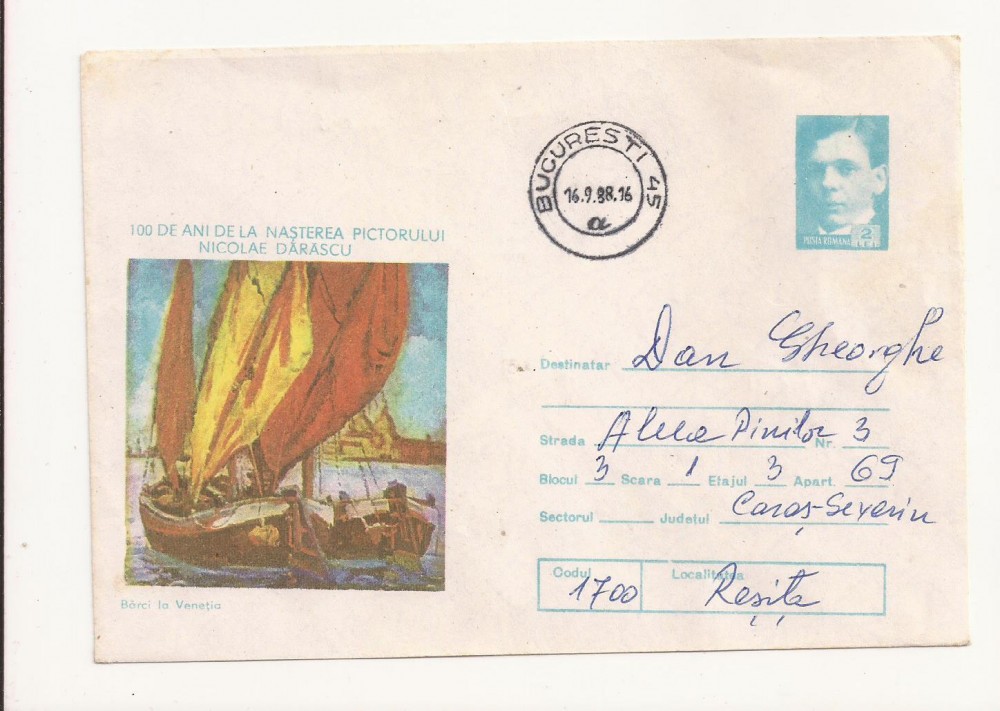 BUCURESTI 45
16.9.88.16
a
POSTA ROMANA 2 LEI
100 DE ANI DE LA NAȘTEREA PICTORULUI
NICOLAE DĂRĂSCU
Bărci la Veneția
Destinatar Dan Gheorghe
Strada Aleea Pinilor Nr. 3
Blocul 3 Scara 1 Etajul 3 Apart. 69
Sectorul Județul Caraș-Severin
Codul Localitatea
1700 Reșița